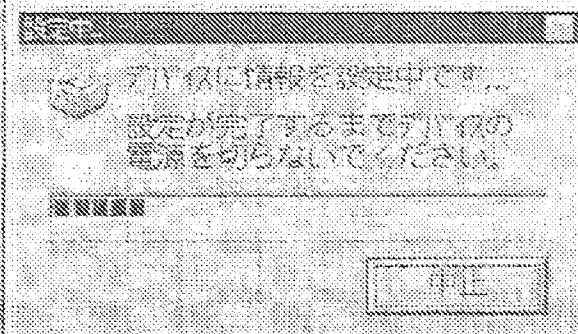 設定中
デバイスに情報を設定中です...
設定が完了するまでデバイスの
電源を切らないでください。
中止